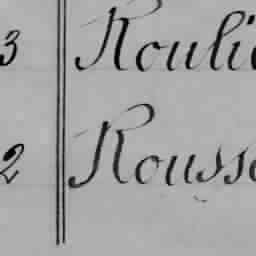 3 Roulie
2 Rousse